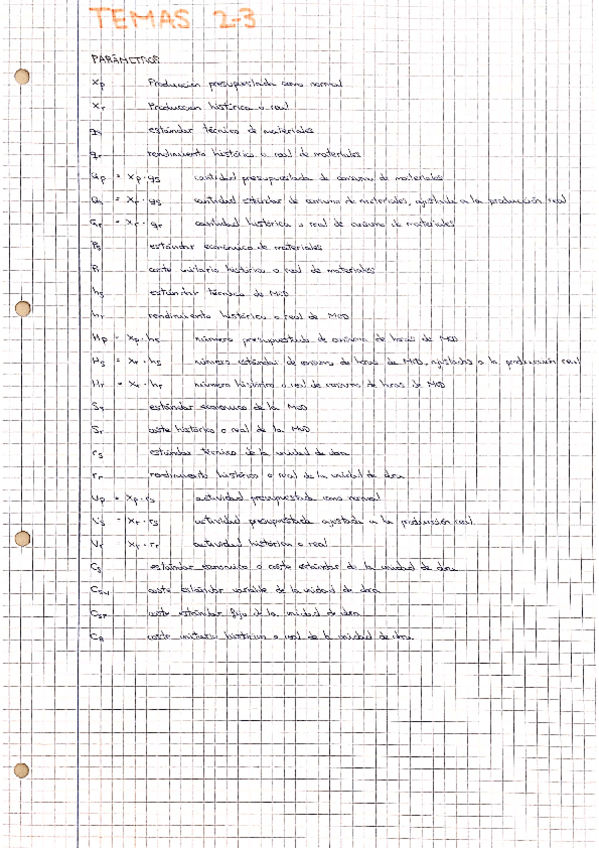 TEMAS 2-3
PARÁMETROS
Xp Producción presupuestada como normal
Xr Producción histórica o real
qs estándar técnico de materiales
qr rendimiento histórico o real de materiales
Qp = Xp · qs cantidad presupuestada de consumo de materiales
Qs = Xr · qs cantidad estándar de consumo de materiales, ajustada a la producción real
Qr = Xr · qr cantidad histórica o real de consumo de materiales
Ps estándar económico de materiales
Pr coste unitario histórico o real de materiales
hs estándar técnico de MOD
hr rendimiento histórico o real de MOD
Hp = Xp · hs número presupuestado de consumo de horas de MOD
Hs = Xr · hs número estándar de consumo de horas de MOD, ajustado a la producción real
Hr = Xr · hr número histórico o real de consumo de horas de MOD
Ss estándar económico de la MOD
Sr coste histórico o real de la MOD
rs estándar técnico de la unidad de obra
rr rendimiento histórico o real de la unidad de obra
Up = Xp · rs actividad presupuestada como normal
Us = Xr · rs actividad presupuestada ajustada a la producción real
Ur Xr · rr actividad histórica o real
Cs estándar económico o coste estándar de la unidad de obra
Csv coste estándar variable de la unidad de obra
Csf coste estándar fijo de la unidad de obra
CR coste unitario histórico o real de la unidad de obra